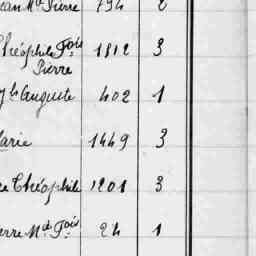 Jean Mie Pierre 794 2
Théophile Fois 1812 3
Pierre
Auguste 402 1
Marie 1449 3
Théophile 1201 3
Pierre Md Fois 24 1